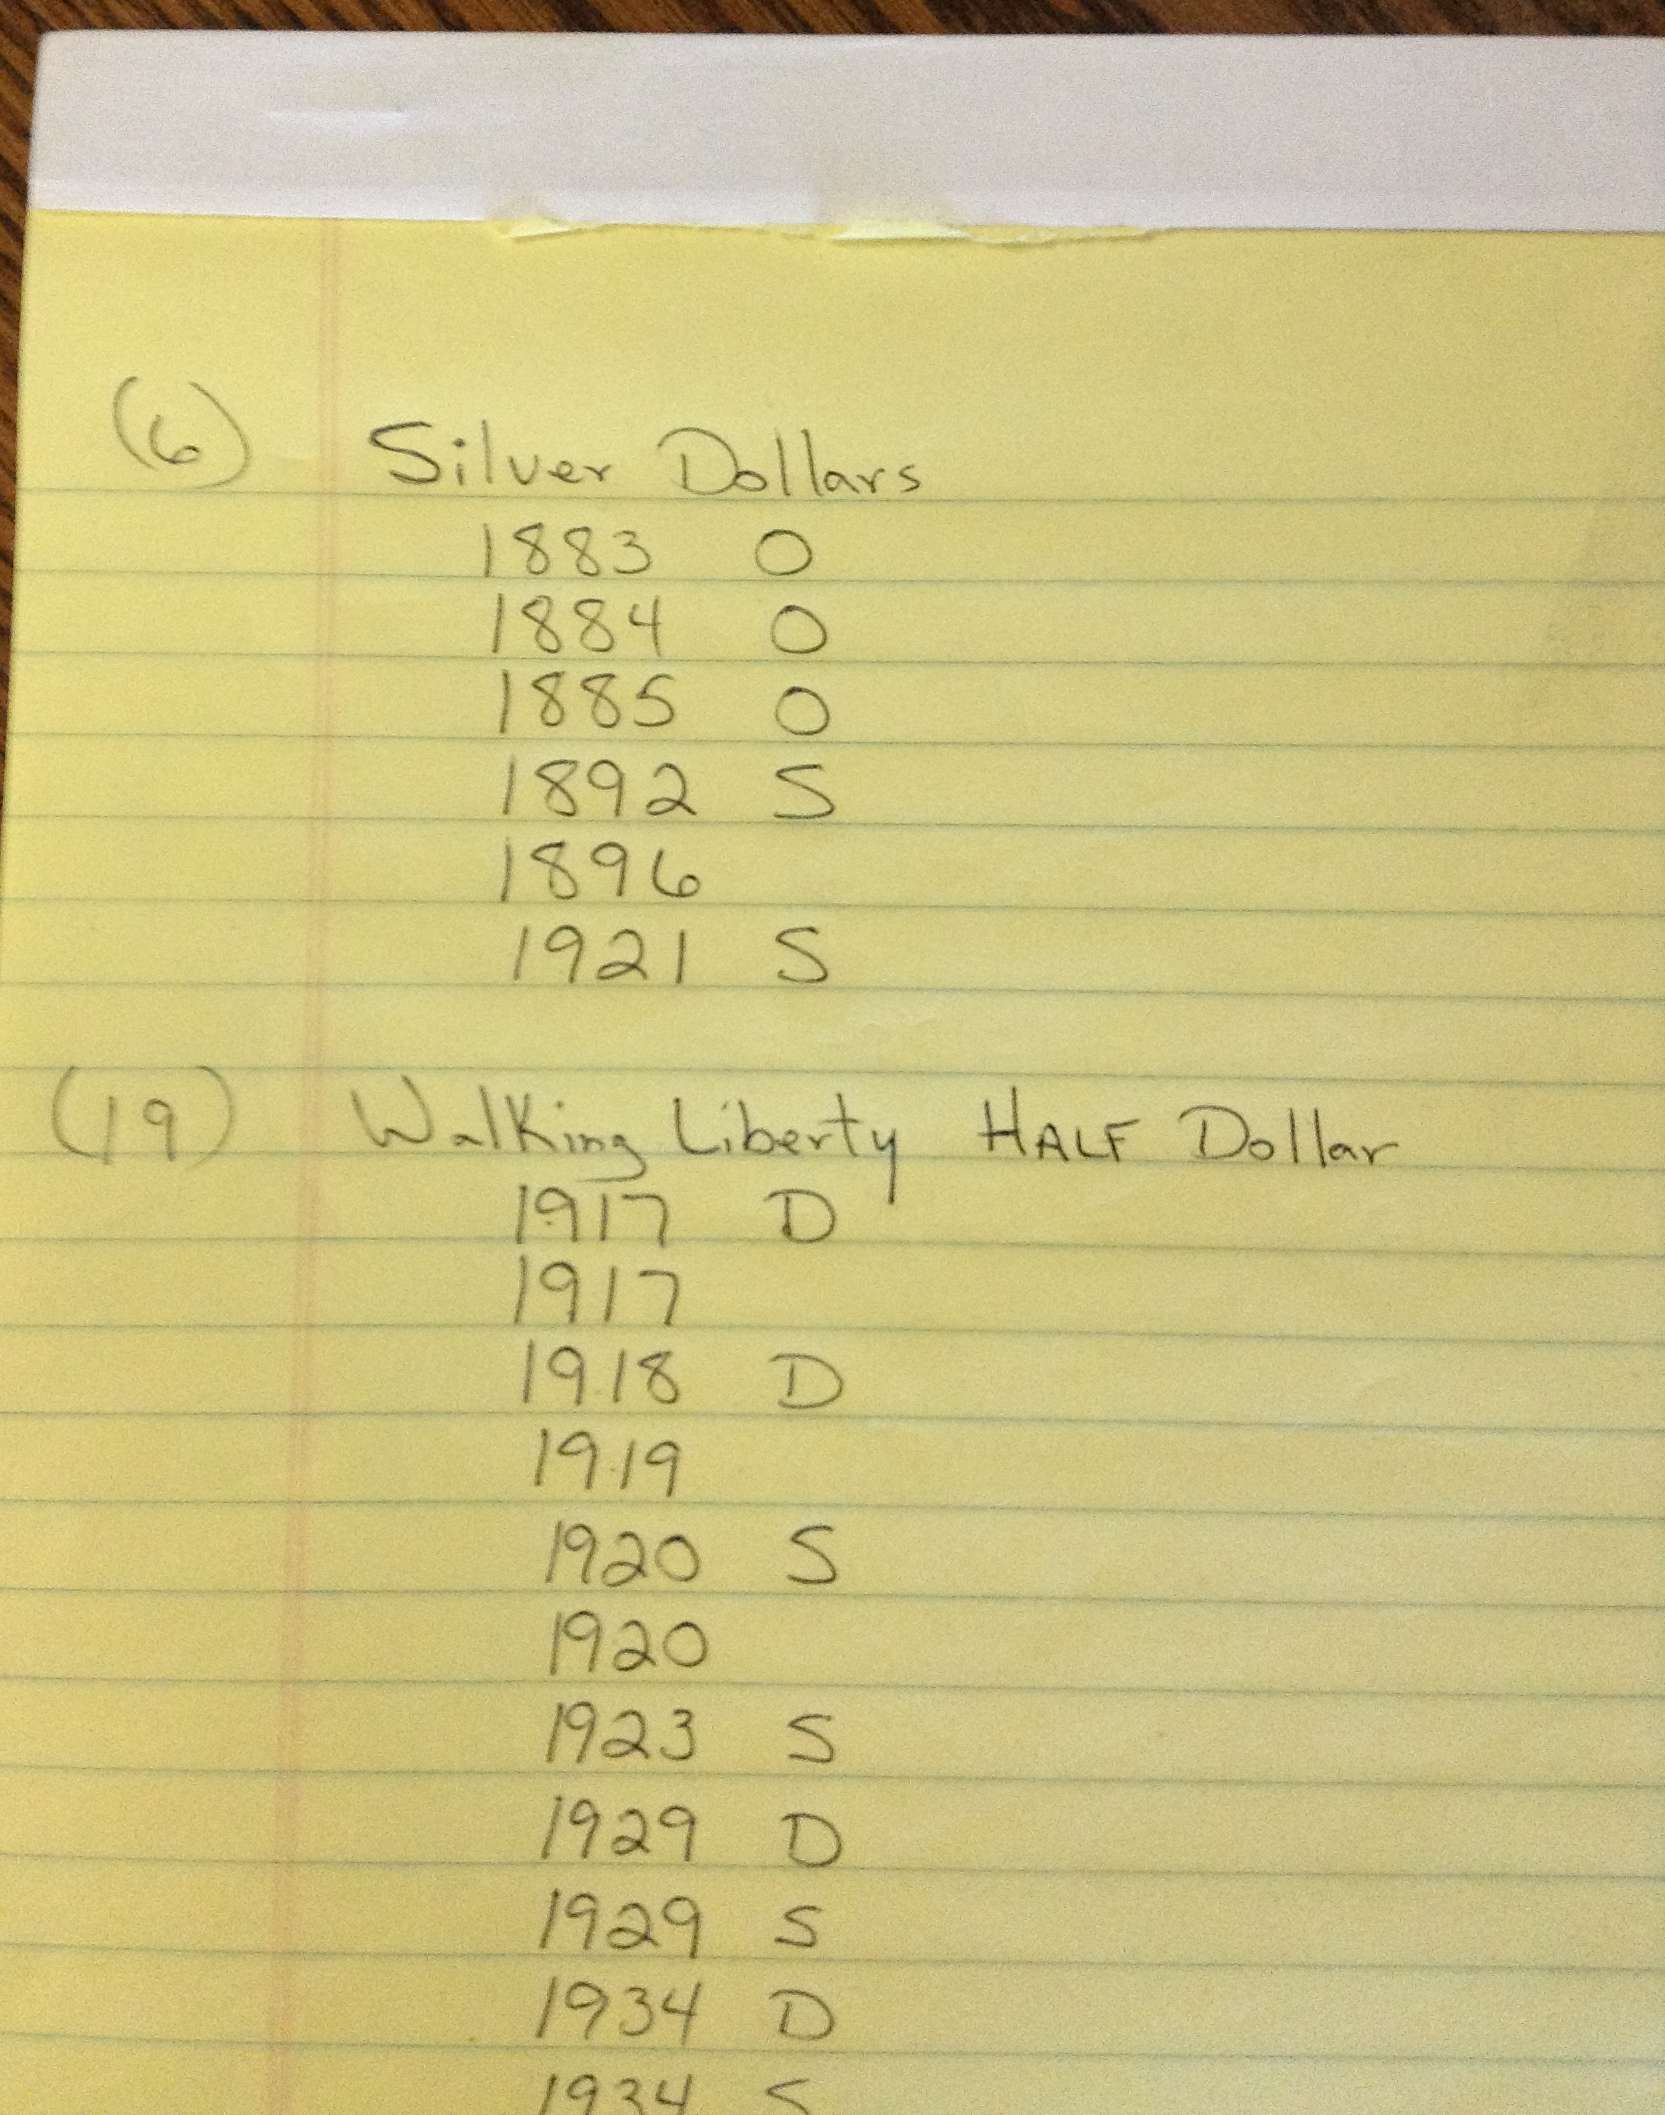 (6) Silver Dollars
1883 O
1884 O
1885 O
1892 S
1896
1921 S
(19) Walking Liberty HALF Dollar
1917 D
1917
1918 D
1919
1920 S
1920
1923 S
1929 D
1929 S
1934 D
1934 S